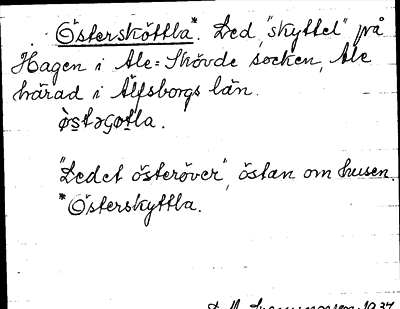 Östersköttla*. Led, "skyttel" på
Hagen i Ale=Skövde socken, Ale
härad i Älfsborgs län.
"Ledet österöver", östan om husen.
*Österskyttla.
1934